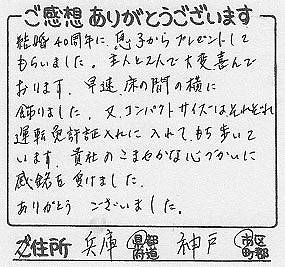 ご感想ありがとうございます
結婚40周年に息子からプレゼントして
もらいました。主人と2人で大変喜んで
おります。早速床の間の横に
飾りました。又、コンパクトサイズはそれぞれ
運転免許証入れに入れて、もち歩いて
います。貴社のこまやかな心づかいに
感銘を受けました。
ありがとう ございました。
ご住所 兵庫 都道府県 神戸 市区町郡